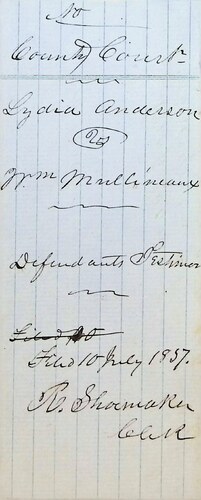 No
County Court
Lydia Anderson
vs
Wm Mullineaux
Defendants Testimon
Filed 10
Filed 10 July 1857.
R. Shoemaker
Clerk